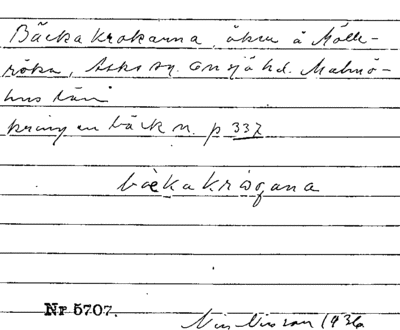 Bäckakrokarna, åkrar å Mölle-
röka, Asks sn. Onsjö hd. Malmö-
hus län
kring en bäck n. p 337
Nr 5707.
1936